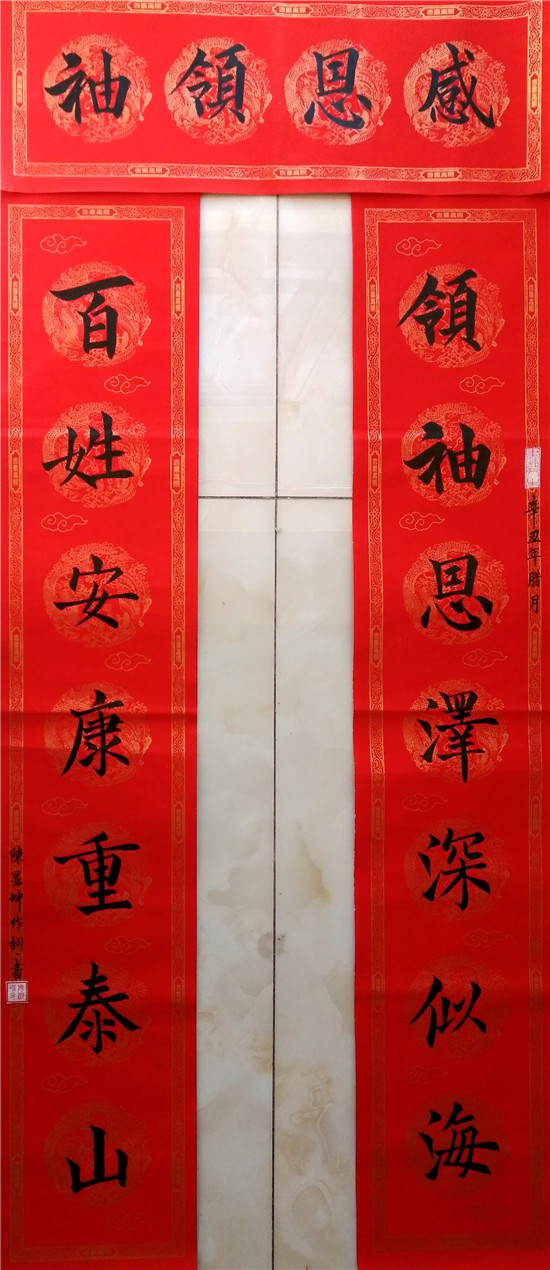 感恩領袖
領袖恩澤深似海
辛丑年腊月
百姓安康重泰山
陳昱坤作詞·書